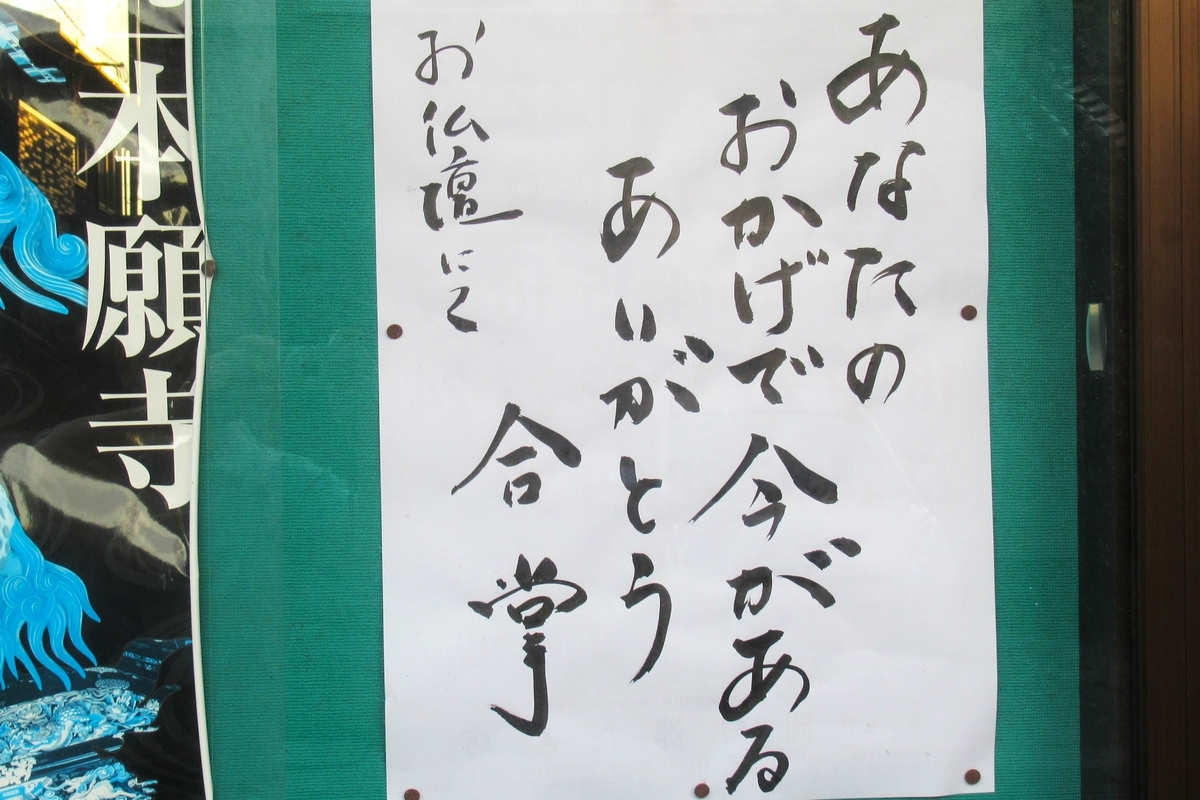 あなたの
おかげで今がある
ありがとう
合掌
お仏壇にて
本願寺